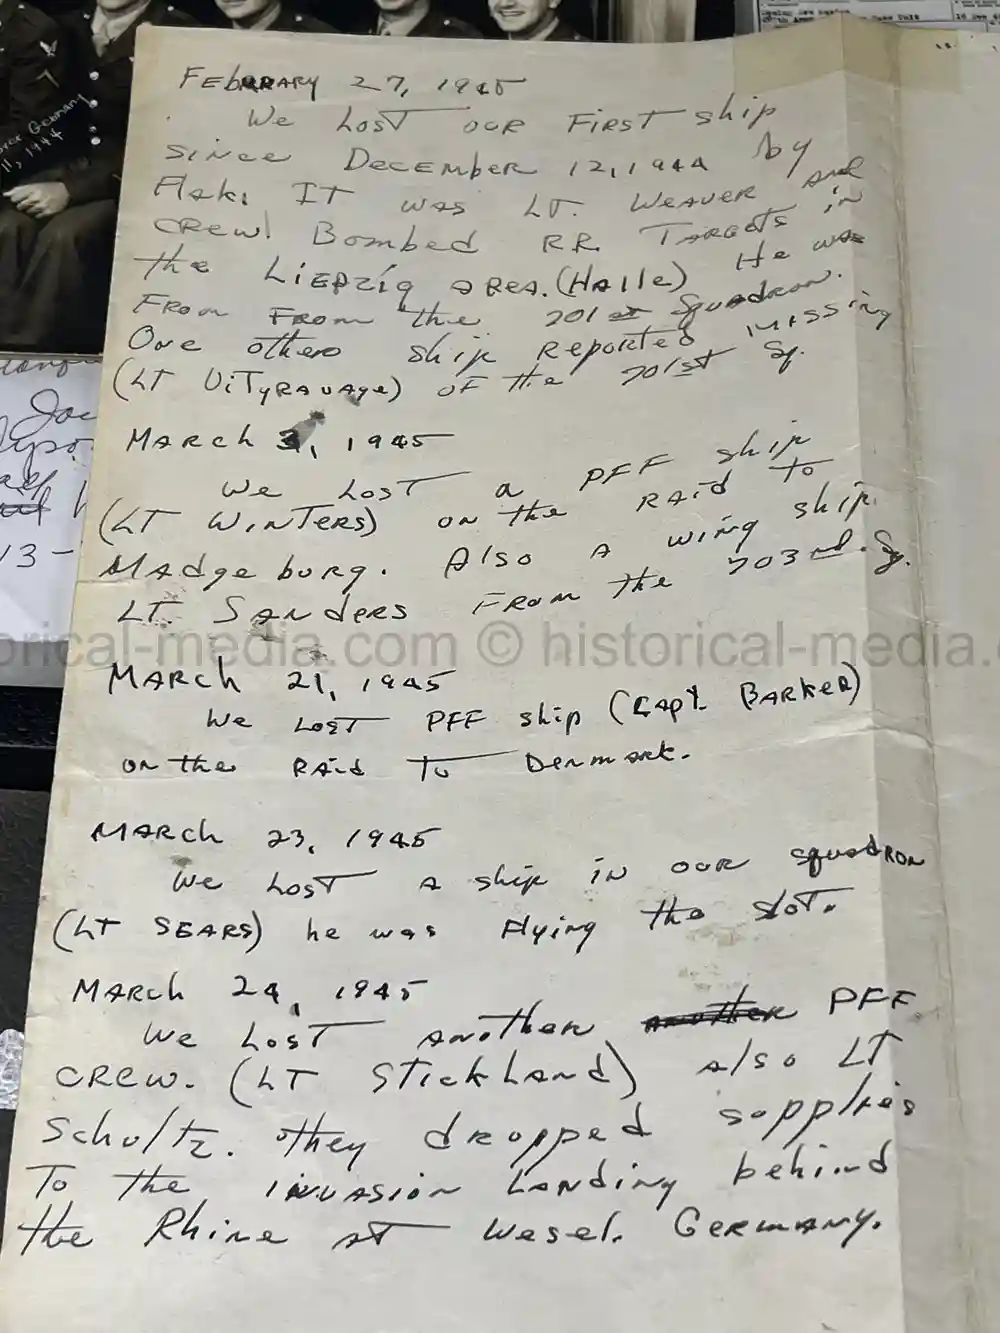 FEbRUARY 27, 1945
We LOST OUR FIRST ship
since DECEMBER 12, 1944 by
Flak. IT was LT. WEAVER and
CREW. Bombed RR. TARGETS in
the LIEPZig AREA. (Halle) He was
FROM FROM the 701st Squadron.
One other ship REPORTED missing
(LT ViTyRAVAge) OF the 701st Sq.
MARCH 3, 1945
We LOST a PFF ship
(LT WINTERS) on the RAid to
MAdgeburg. Also A wing ship.
LT. SANders FROM the 703rd. Sq.
MARCH 21, 1945
We LOST PFF ship (CAPT. BARKER)
on the RAid To Denmark.
MARCH 23, 1945
We LOST A ship in OUR squadRON
(LT SEARS) he was Flying the slot.
MARCH 24, 1945
We LOST ANOTHER another PFF
CREW. (LT STickLand) Also LT
Schultz. they dropped supplies
To the iNVASION LANDing behind
the Rhine AT Wesel. GERMANY.
orical-media.com © historical-media.
over Germany
11, 1944
Joe
13 -